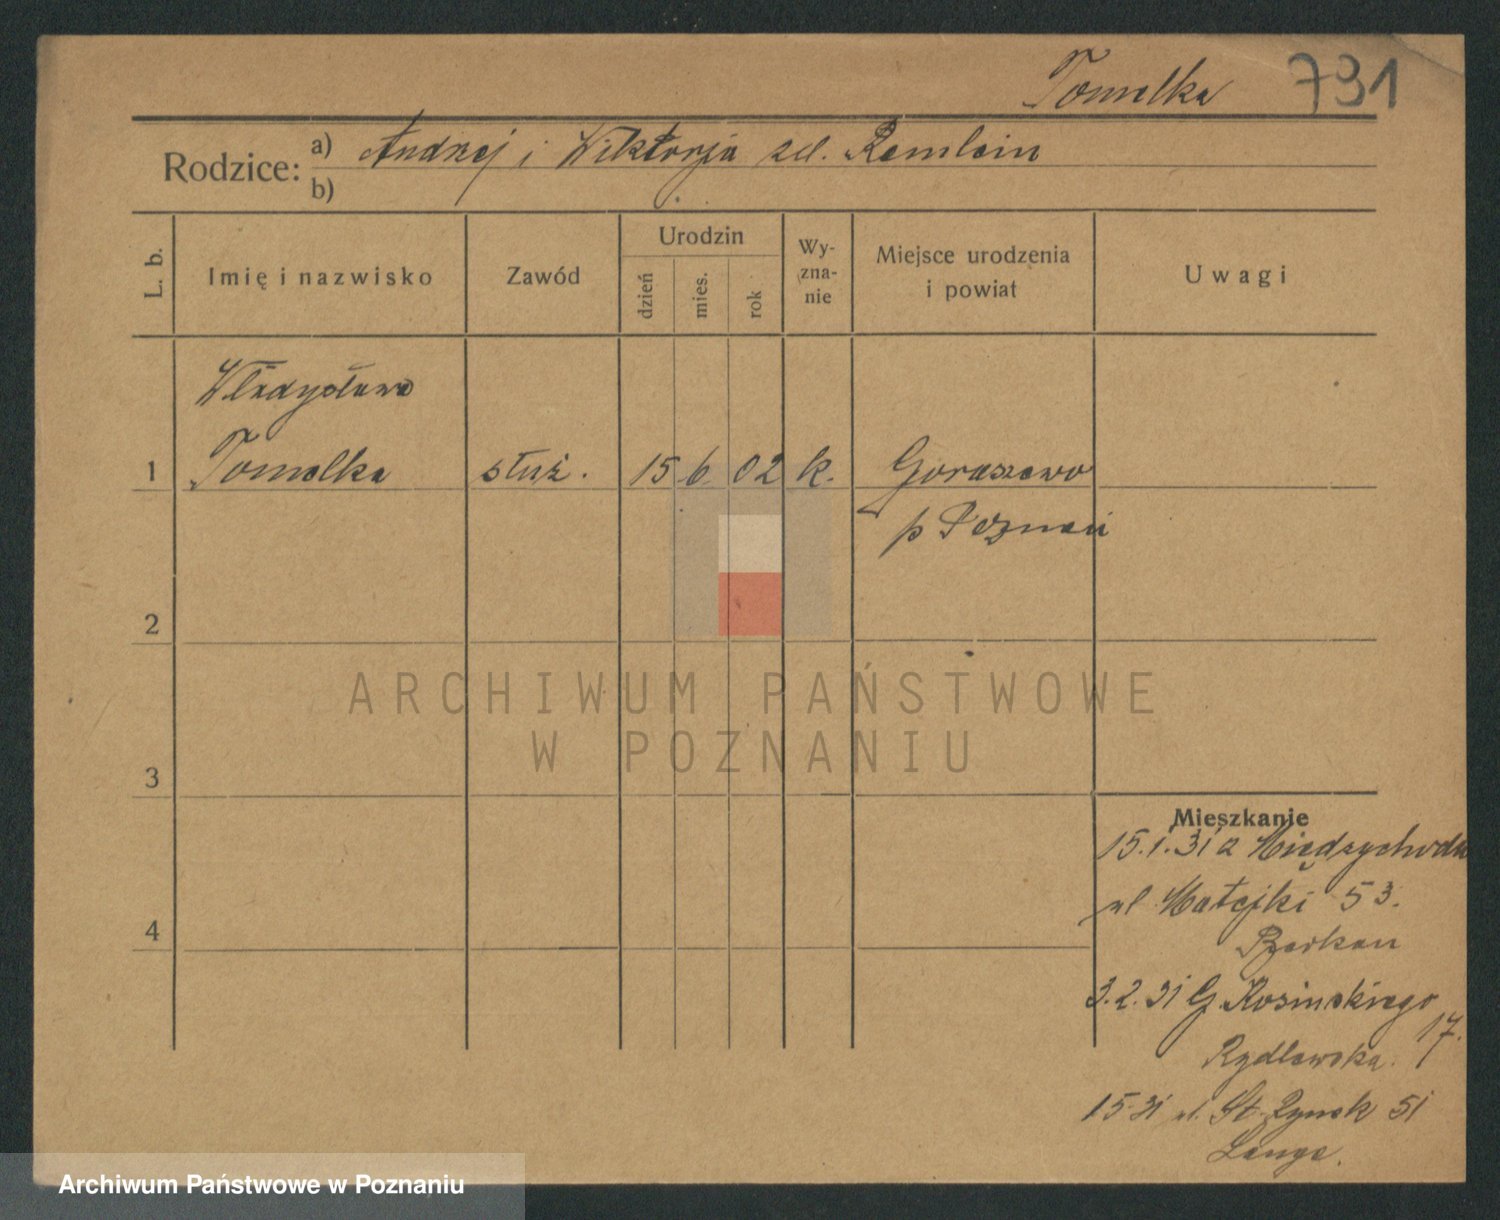 Tomelka 731
Rodzice: a) Andrzej i Wiktorja zd. Remlein
b)
L. b. Imię i nazwisko Zawód Urodzin Wyzna-nie Miejsce urodzenia i powiat Uwagi
dzień mies. rok
Władysława
1 Tomelka służ. 15 6. 02 k. Goraszewo
p Poznań
2
ARCHIWUM PAŃSTWOWE
W POZNANIU
3
Mieszkanie
15.1.31 z Międzychodu
4 ul Matejki 53.
3.2.31 G. Kosinskiego 17.
Rydlewska.
15 31 ul. St. Rynek 51
Lange.
Archiwum Państwowe w Poznaniu